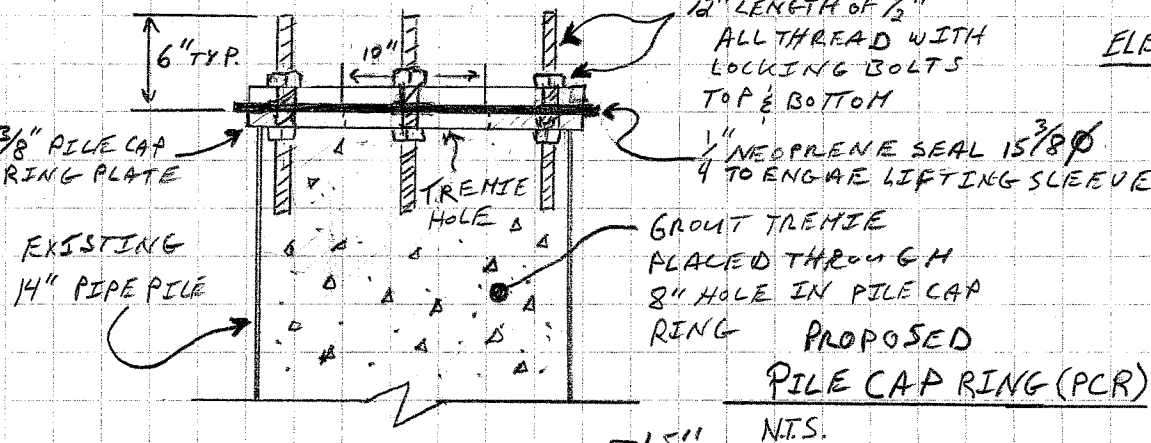 12" LENGTH OF 1/2"
ALL THREAD WITH
LOCKING BOLTS
TOP & BOTTOM
6" TYP.
10"
3/8" PILE CAP
RING PLATE
TREMIE
HOLE
1/4" NEOPRENE SEAL 15 3/8 Ø
TO ENGAE LIFTING SLEEVE
EXISTING
14" PIPE PILE
GROUT TREMIE
PLACED THROUGH
8" HOLE IN PILE CAP
RING
PROPOSED
PILE CAP RING (PCR)
N.T.S.